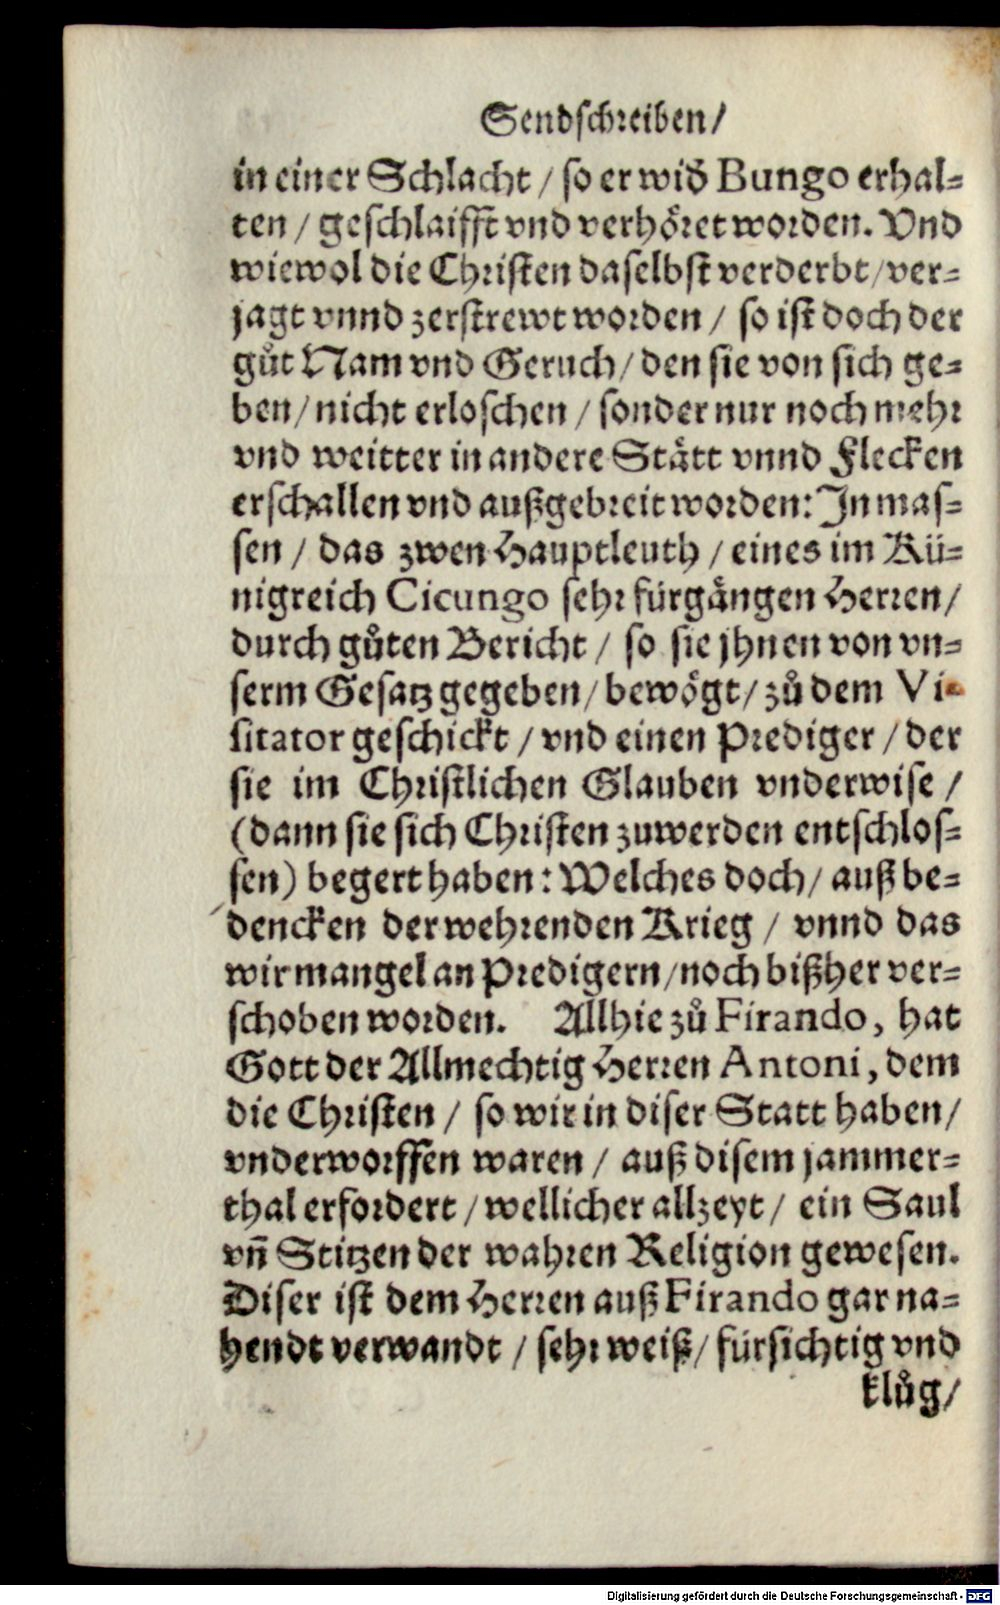 Sendschreiben/
in einer Schlacht / so er wid̄ Bungo erhal-
ten / geschlaifft vnd verhöret worden. Vnd
wiewol die Christen daselbst verderbt/ver-
jagt vnnd zerstrewt worden / so ist doch der
gůt Nam vnd Geruch/ den sie von sich ge-
ben/ nicht erloschen / sonder nur noch mehr
vnd weitter in andere Stätt vnnd Flecken
erschallen vnd außgebreit worden: In mas-
sen / das zwen Hauptleuth / eines im Kü-
nigreich Cicungo sehr fürgängen Herren/
durch gůten Bericht / so sie jhnen von vn-
serm Gesatz gegeben/ bewögt/ zů dem Vi-
sitator geschickt / vnd einen Prediger / der
sie im Christlichen Glauben vnderwise /
(dann sie sich Christen zuwerden entschlos-
sen) begert haben: Welches doch/ auß be-
dencken der wehrenden Krieg / vnnd das
wir mangel an Predigern/noch bißher ver-
schoben worden. Allhie zů Firando, hat
Gott der Allmechtig Herren Antoni, dem
die Christen / so wir in diser Statt haben/
vnderworffen waren / auß disem jammer-
thal erfordert / wellicher allzeyt / ein Saul
vñ Stitzen der wahren Religion gewesen.
Diser ist dem Herren auß Firando gar na-
hendt verwandt / sehr weiß/ fürsichtig vnd
klůg/
Digitalisierung gefördert durch die Deutsche Forschungsgemeinschaft - DFG